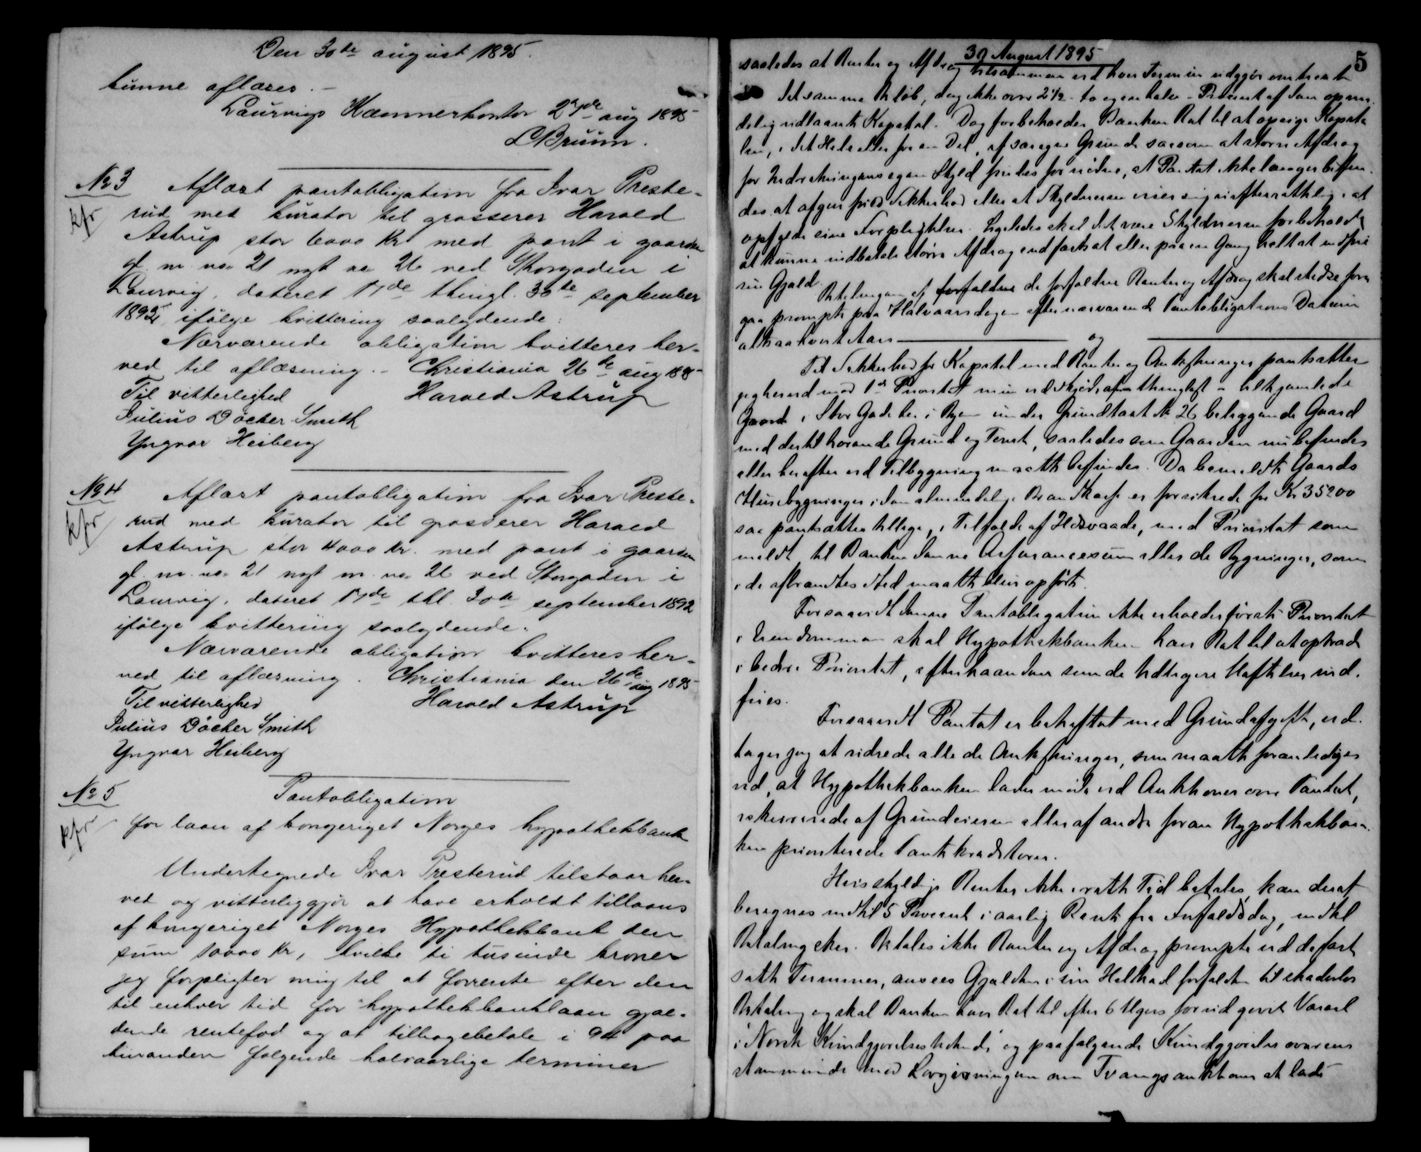 Den 30te august 1895.
kunne aflæses. –
Laurvigs Kæmnerkontor aug 1895
LBruun.
No 3 Aflæst pantobligation fra Ivar Preste-
kfr rud med kurator til grosserer Harald
Astrup stor 6000 Kr med pant i gaarden
gl. m no 21 nyt no 26 ved Storgaden i
Laurvig, dateret 17de thingl. 30te september
1892 ifølge kvittering saalydende:
Nærværende obligation kvitteres her-
ved til aflæsning. – Christiania 26de aug 1895
Til vitterlighed Harald Astrup
Julius Döcker Smith
Yngvar Heiberg
No 4 Aflæst pantobligation fra Ivar Preste-
kfr rud med kurator til grosserer Harald
Astrup stor 4000 kr. med pant i gaarden
gl. m. no. 21 nyt m. no 26 ved Storgaden i
Laurvig, dateret 17de thl. 30te september 1892
ifølge kvittering saalydende.
Nærværende obligation kvitteres her-
ved til aflæsning. Christiania den 26de aug 1895
Til vitterlighed Harald Astrup
Julius Döcker Smith
Yngvar Heiberg
No 5 Pantobligation
kfr for laan af kongeriget Norges hypothekbank
Undertegnede Ivar Presterud tilstaar her-
ved og vitterliggjør at have erholdt tillaans
af kongeriget Norges Hypothekbank den
sum 10000 Kr, hvilke ti tusinde kroner
jeg forpligter mig til at forrente efter den
til enhver tid for hypothekbanklaan gjæl-
dende rentefod og at tilbagebetale i 94 paa
hinanden følgende halvaarlige terminer
30 August 1895
5
saaledes at Renter og Afdrag tilsammen ved hver Termin udgjør omtrent
det samme Beløb, dog ikke over 2½ – to og en halv – Procent af den oprin-
delig udlaante Kapital. Dog forbeholdes Banken Ret til at opsige Kapita-
len, i det Hele eller for en Del, af særegne Grunde saasom at større Afdrag
for Inddrivningens egen Skyld findes fornødne, at Pantet ikke længer befin-
des at afgive fuld Sikkerhed eller at Skyldneren viser sig uefterrettelig i at
opfylde sine Forpligtelser. Ligeledes skal det være Skyldneren forbeholdt
at kunne indbetale større Afdrag end fastsat eller paa en Gang heelt at indfri
sin Gjæld
Betalingen af forfaldne de forfaldne Renter og Afdrag skal stedse fore-
gaa prompte paa Halvaarsdagen efter nærværende Pantobligations Datum
altsaa hvert Aars og
Til Sikkerhed for Kapital med Renter og Omkostninger pantsætter
jeg herved med 1st Prioritet min ved Skjøde thinglyst tilhjemlede
Gaard i Store Gade her i Byen under Grundtaxt No 26 beliggende Gaard
med dertil hørende Grund og Tomt, saaledes som Gaarden nu befindes
eller herefter ved Tilbygning maatte befindes. Da bemeldte Gaards
Husebygninger i den almindelige Brandkasse er forsikrede for Kr 35200
saa pantsættes tillige, i Tilfælde af Ildsvaade, med Prioritet som
meldt til Banken denne Assurancesum eller de Bygninger, som
i de afbrændtes Sted maatte blive opført.
Forsaavidt denne Pantobligation ikke erholder første Prioritet
i Eiendommen skal Hypothekbanken have Ret til at optræde
i bedre Prioritet, efterhaanden som de tidligere Heftelser ind-
fries.
Forsaavidt Pantet er beheftet med Grundafgift, ved-
tager jeg at udrede alle de Omkostninger, som maatte foranlediges
ved, at Hypothekbanken lader møde ved Auktioner over Pantet,
rekvirerede af Grundeieren eller af andre foran Hypothekban-
ken prioriterede Pantekreditorer.
Hvis skyldige Renter ikke i rette Tid betales, kan deraf
beregnes indtil 5 Procent i aarlig Rente fra Forfaldsdag, indtil
Betaling skeer. Betales ikke Renter og Afdrag prompte ved de fast-
satte Terminer, ansees Gjælden i sin Helhed forfalden til skadesløs
Betaling og skal Banken have Ret til efter 6 Ugers forudgaaet Varsel
i Norsk Kundgjørelsestidende og paafølgende Kundgjørelse overens-
stemmende med Lovgivningen om Tvangsauktioner at lade